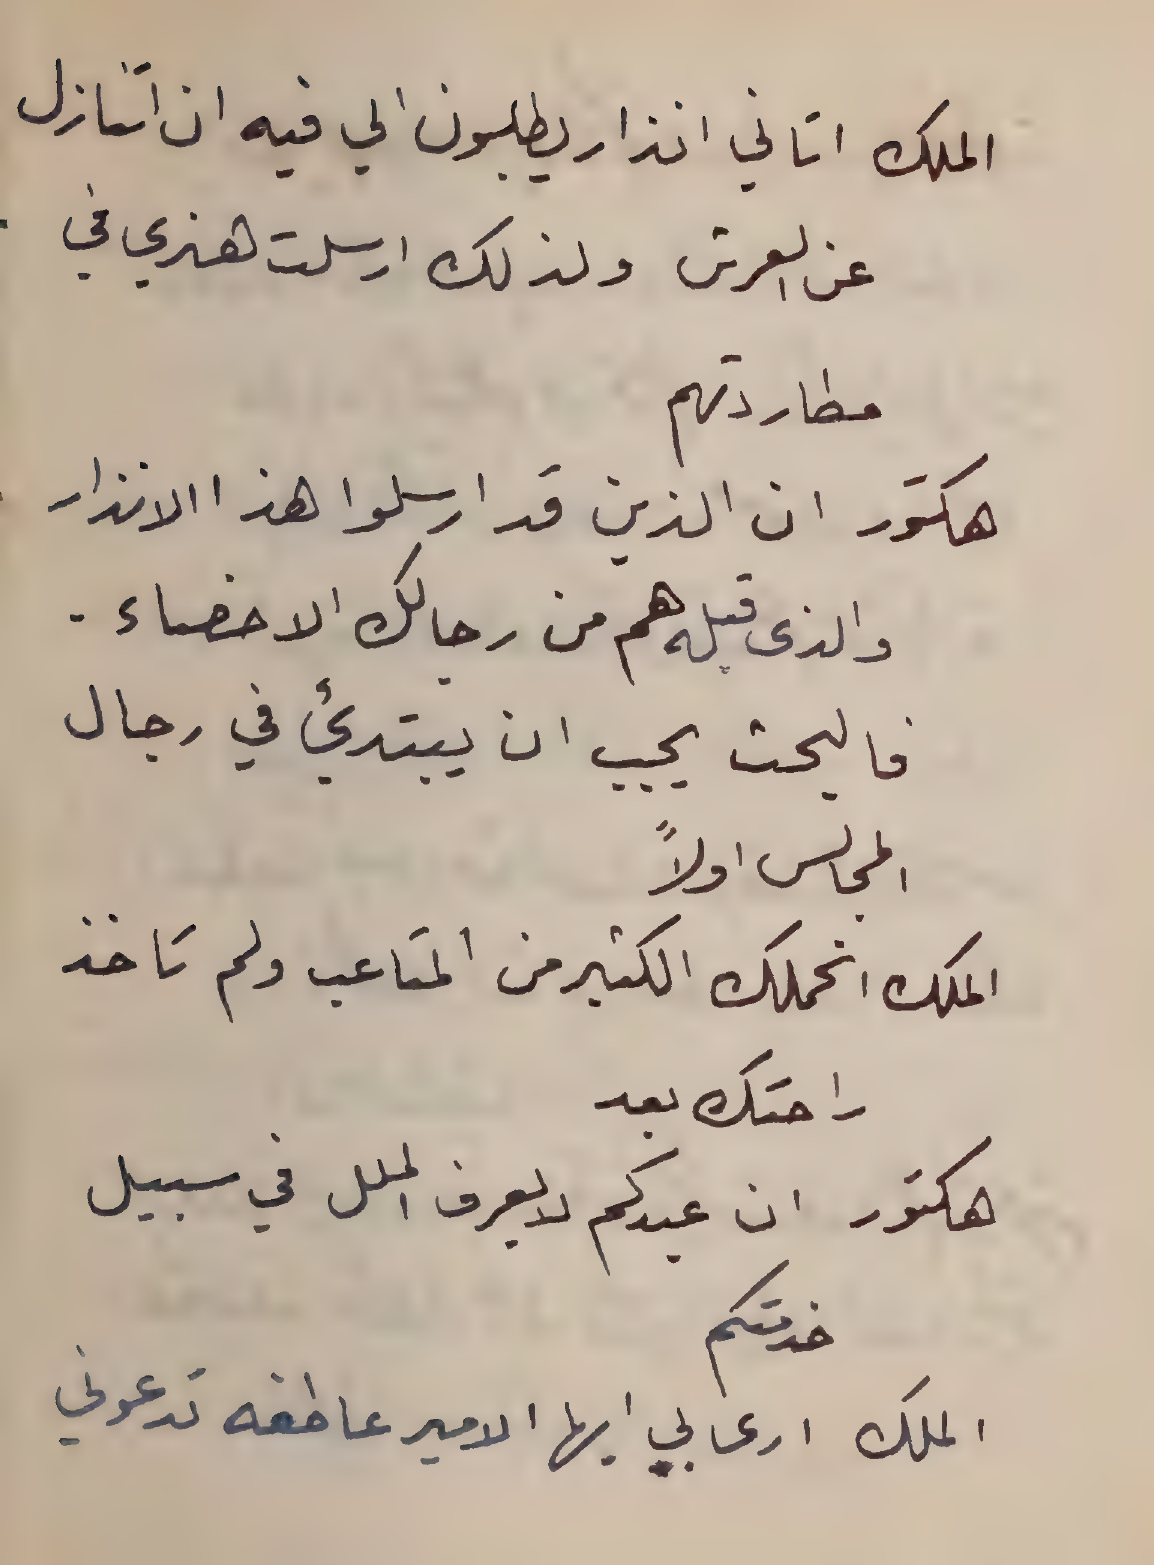 الملك اتاني انذار يطلبون الي فيه ان اتنازل
عن العرش ولذلك ارسلت هنري في
مطاردتهم
هكتور ان الذين قد ارسلوا هذا الانذار
والذى قبله هم من رجالك الاخصاء .
فالبحث يجب ان يبتدئ في رجال
المجالس اولاً
الملك انحملك الكثير من المتاعب ولم تاخذ
راحتك بعد
هكتور ان عبدكم لا يعرف الملل في سبيل
خدمتكم
الملك ارى بي ايها الامير عاطفه تدعوني